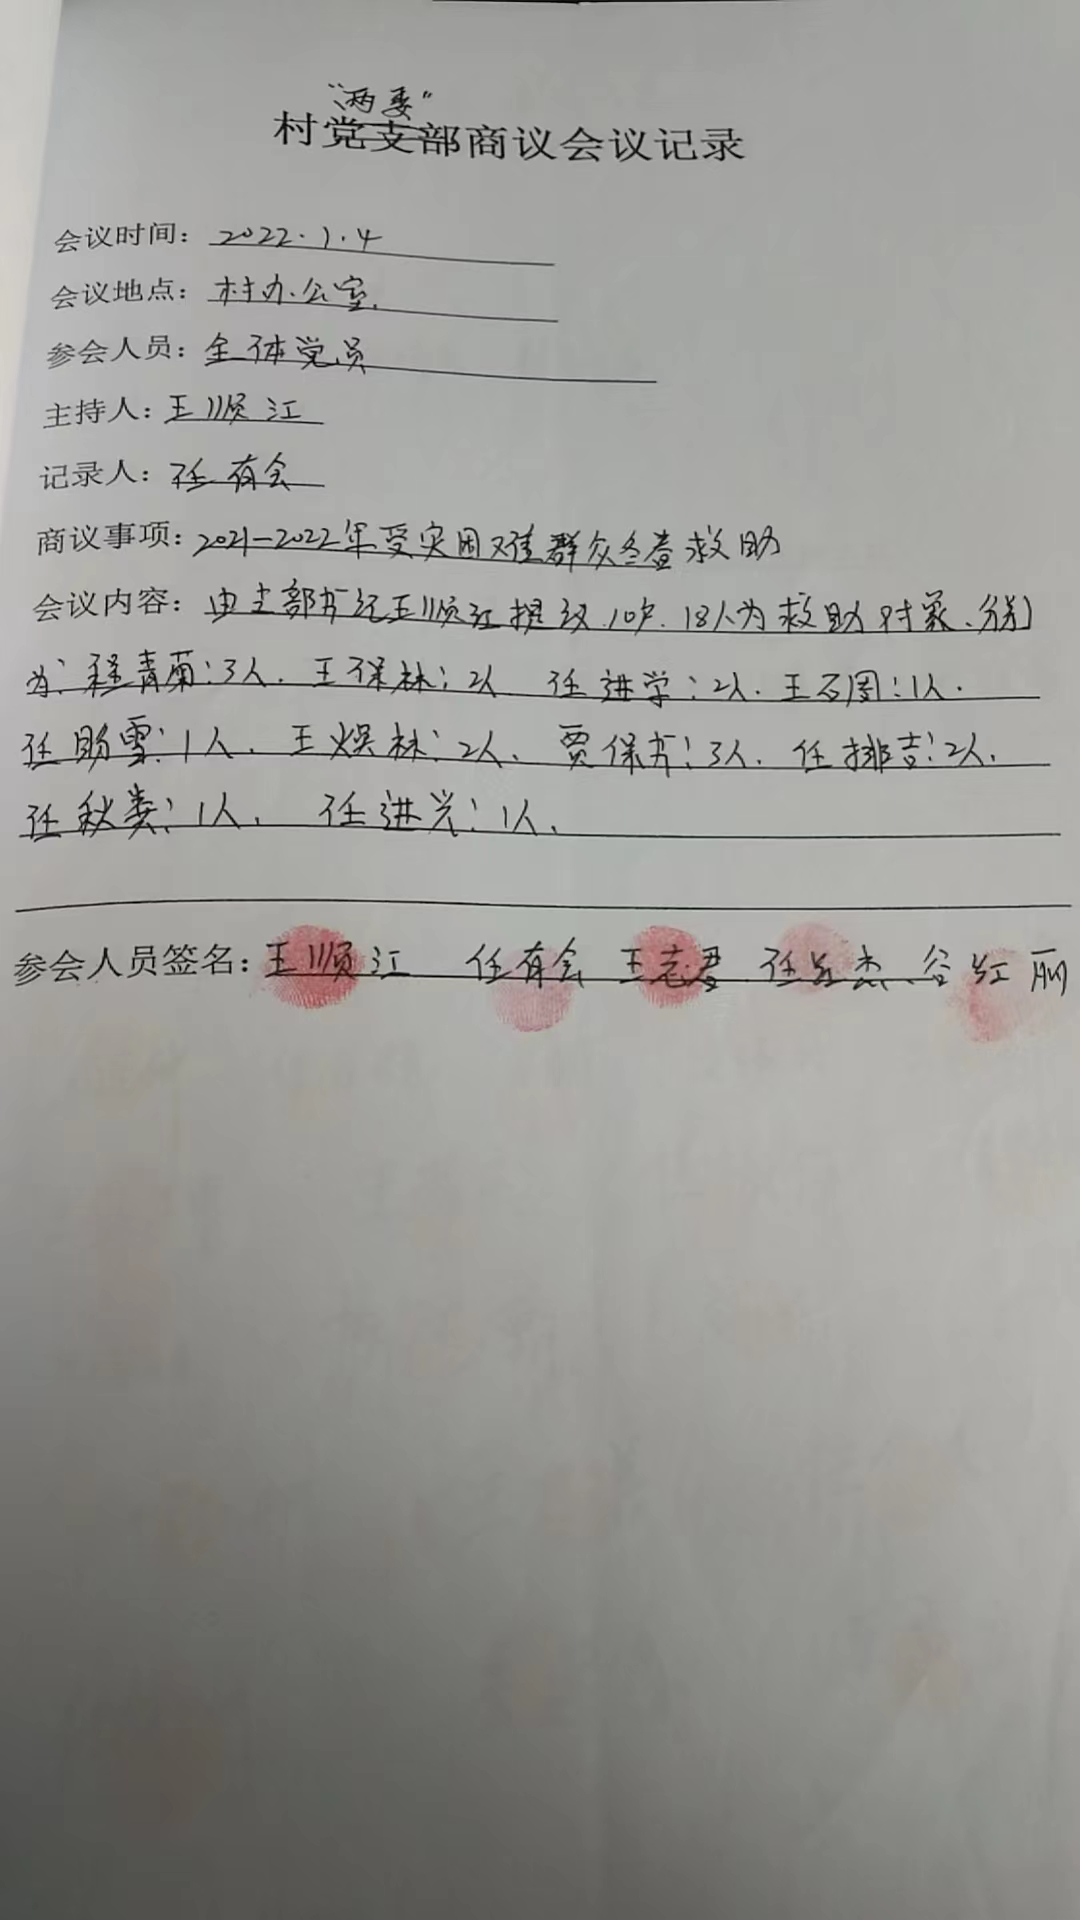 “两委”
村党支部商议会议记录
会议时间：2022.1.4
会议地点：村办公室.
参会人员：全体党员
主持人：王顺江
记录人：任有会
商议事项：2021-2022年受灾困难群众冬春救助
会议内容：由支部书记王顺江提议.10户.18人为救助对象、分别
为：程青菊：3人. 王保林：2人 任进学：2人. 王石周：1人.
任盼雪：1人. 王焕林：2人. 贾保书：3人. 任排吉：2人.
任秋娄：1人. 任进兴：1人.
参会人员签名：王顺江 任有会 王志君 任 杰 谷红丽